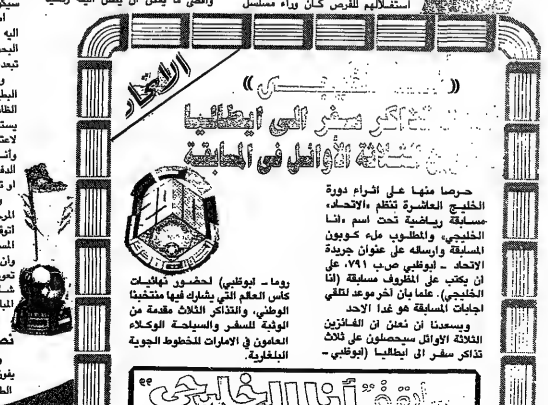 استغلالهم للفرص كان وراء مسلسل
الاتحاد
تذاكر سفر الى ايطاليا
الثلاثة الأوائل في المسابقة
حرصا منها على اثراء دورة
الخليج العاشرة تنظم «الاتحاد»
مسابقة رياضية تحت اسم «انا
الخليجي» والمطلوب ملء كوبون
المسابقة وارساله على عنوان جريدة
الاتحاد - ابوظبي ص.ب ٧٩١، على
ان يكتب على المظروف مسابقة (انا
الخليجي). علما بان آخر موعد لتلقي
اجابات المسابقة هو غدا الاحد
ويسعدنا ان نعلن ان الفائزين
الثلاثة الاوائل سيحصلون على ثلاث
تذاكر سفر الى ايطاليا (ابوظبي -
روما - ابوظبي) لحضور نهائيات
كأس العالم التي يشارك فيها منتخبنا
الوطني، والتذاكر الثلاث مقدمة من
الوثبة للسفر والسياحة الوكلاء
العامون في الامارات للخطوط الجوية
البلغارية.
أنا الخليجي